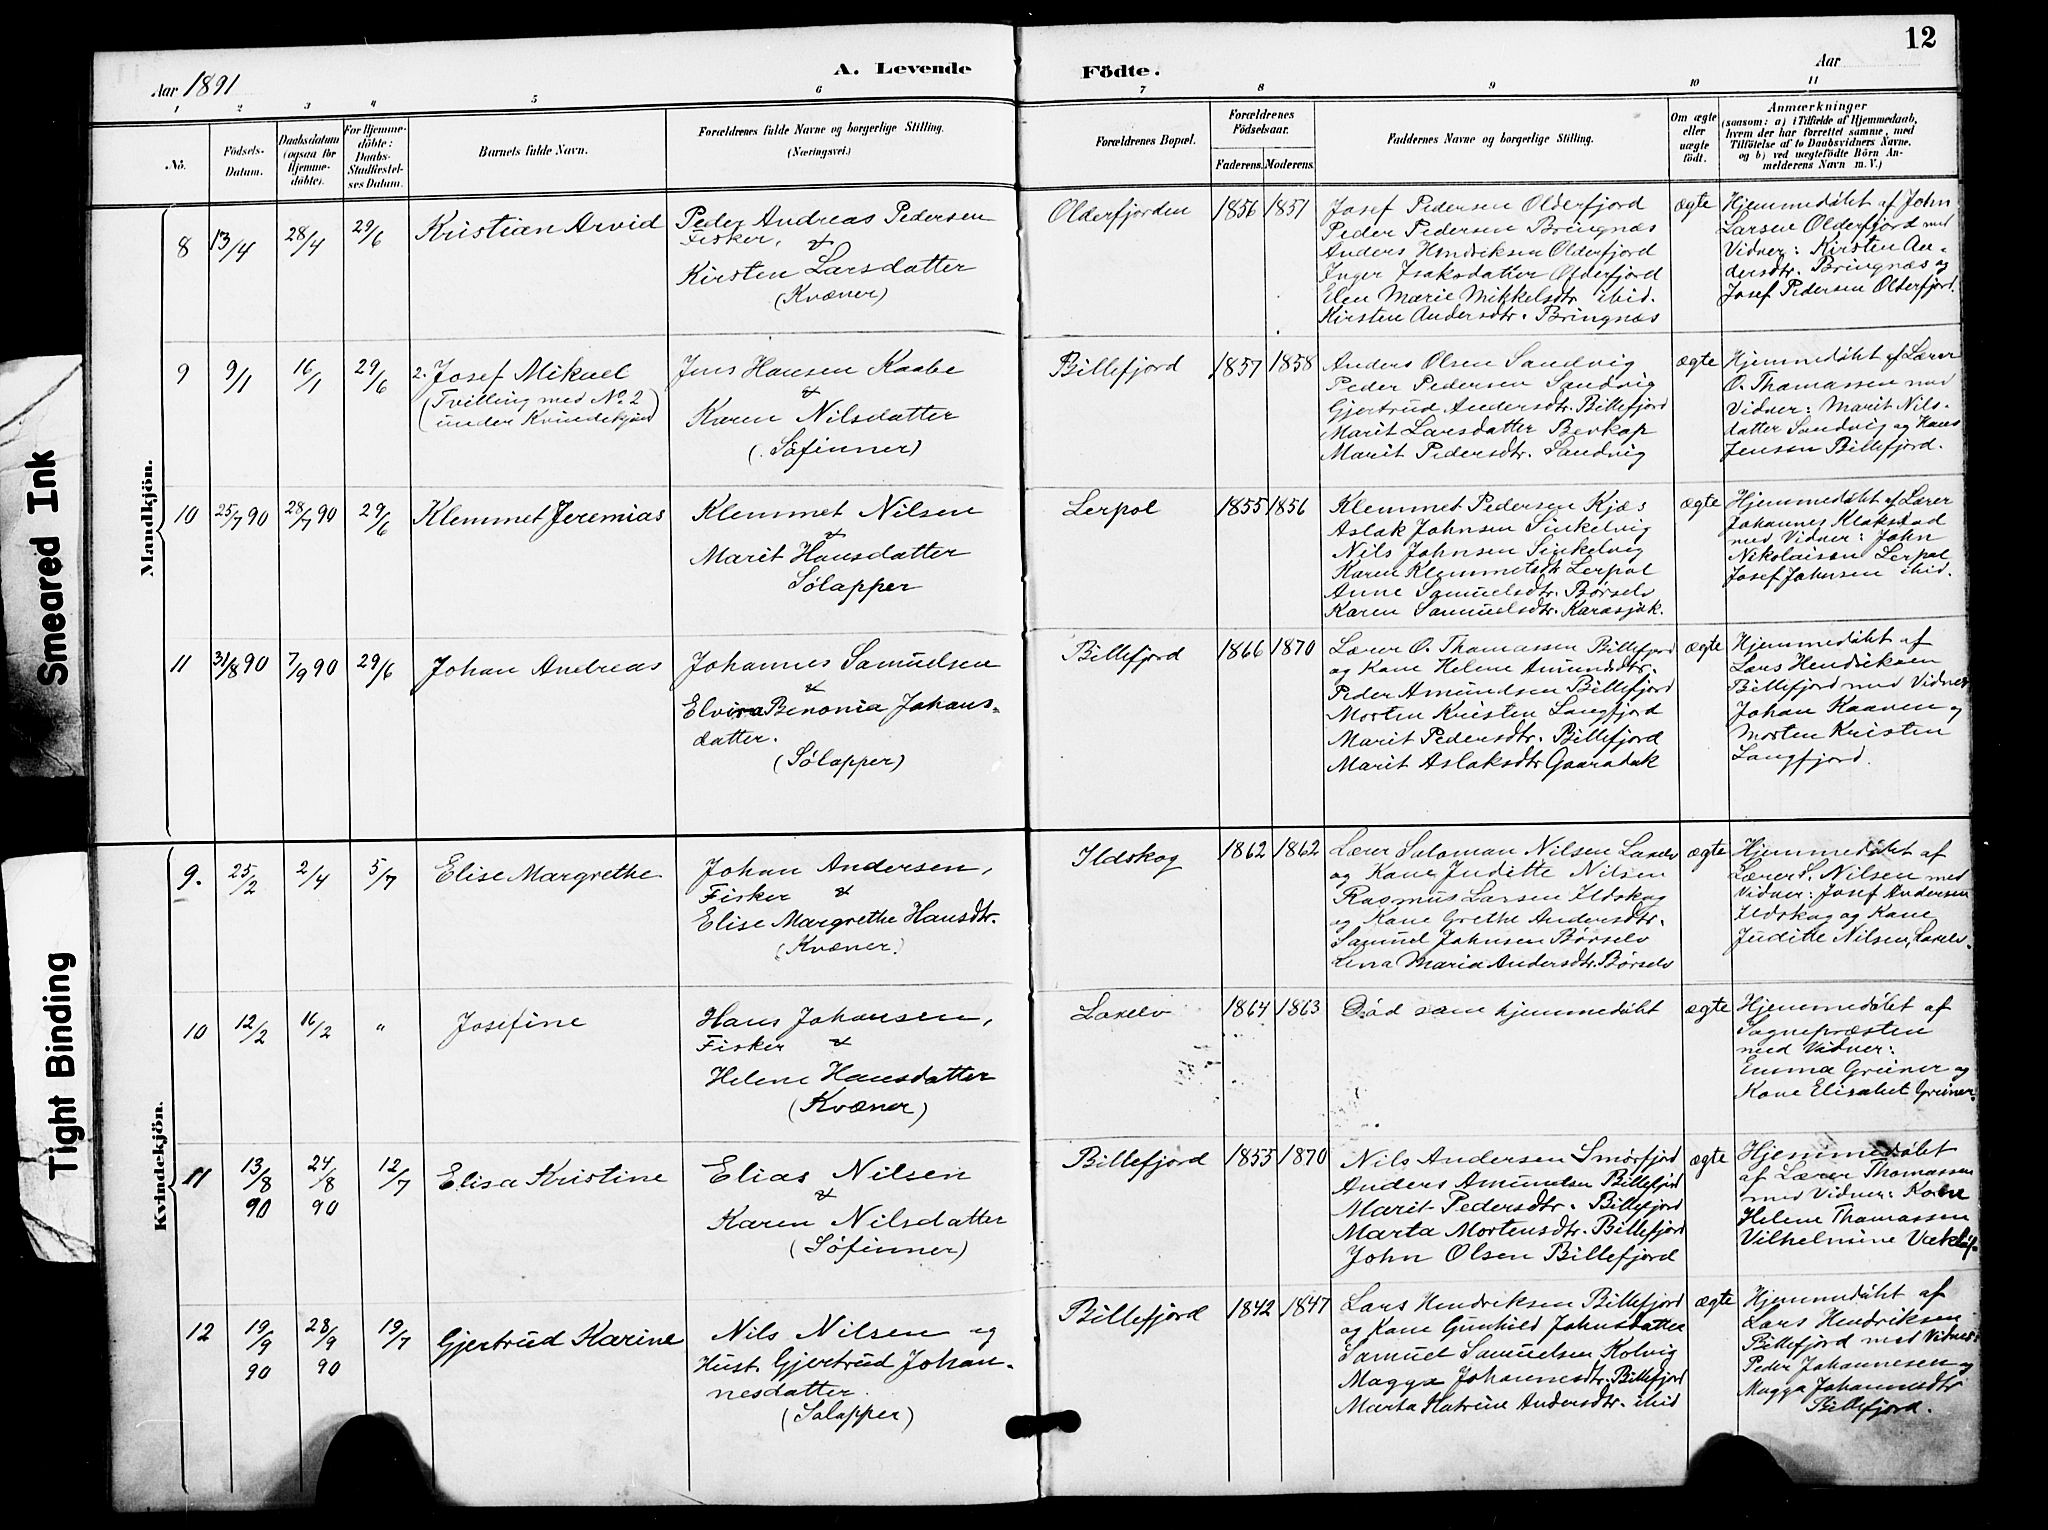 12
Aar 1891
A. Levende Födte.
Aar
1 2 3 4 5 6 7 8 9 10 11
Nö.
Födsels-
Datum.
Daabsdatum
(ogsaa for
Hjemme-
döbte).
For Hjemme-
döbte:
Daabs-
Stadfæstel-
ses Datum.
Barnets fulde Navn.
Forældrenes fulde Navne og borgerlige Stilling.
(Næringsvei.)
Forældrenes Bopæl.
Forældrenes
Födselsaar.
Faderens. Moderens.
Faddernes Navne og borgerlige Stilling.
Om ægte
eller
uægte
födt.
Anmærkninger
(saasom: a) i Tilfælde af Hjemmedaab,
hvem der har forrettet samme, med
Tilföielse af to Daabsvidners Navne,
og b) ved uægtefödte Börn An-
melderens Navn m. V.)
Mandkjön.
8 13/4 28/4 29/6 Kristian Arvid
Peder Andreas Pedersen
Fisker, &
Kirsten Larsdatter
(Kvæner)
Olderfjorden 1856 1851
Josef Pedersen Olderfjord
Peder Pedersen Bringnæs
Anders Hendriksen Olderfjord
Inger Isaksdatter Olderfjord
Elen Marie Mikkelsdtr. ibid.
Kirsten Andersdtr. Bringnæs
ægte
Hjemmedøbt af John
Larsen Olderfjord med
Vidner: Kirsten An-
dersdtr. Bringnæs og
Josef Pedersen Olderfjord.
9 9/1 16/1 29/6 2. Josef Mikael
(Tvilling med No. 2
under Kvindekjøn)
Jens Hansen Kaabe
&
Karen Nilsdatter
(Söfinner)
Billefjord 1857 1858
Anders Olsen Sandvig
Peder Pedersen Sandvig
Gjertrud Andersdtr. Billefjord
Marit Larsdatter Bevkop
Marit Pedersdtr. Sandvig
ægte
Hjemmedøbt af Lærer
O. Thomassen med
Vidner: Marit Nils-
datter Sandvig og Hans
Jensen Billefjord.
10 25/7 90 28/7 90 29/6 Klemmet Jeremias
Klemmet Nilsen
&
Marit Hansdatter
Sølapper
Lerpol 1855 1856
Klemmet Pedersen Kjæs
Aslak Johnsen Sinkelvig
Nils Johnsen Sinkelvig
Karen Klemmetsdtr Lerpol
Anne Samuelsdtr. Børselv
Karen Samuelsdtr. Karasjok.
ægte
Hjemmedøbt af Lærer
Johannes Klokstad
med Vidner: John
Nikolaisen Lerpol
Josef Johnsen ibid.
11 31/8 90 7/9 90 29/6 Johan Andreas
Johannes Samuelsen
&
Elvira Benonia Johans-
datter.
(Sølapper)
Billefjord 1866 1870
Lærer O. Thomassen Billefjord
og Kone Helene Amundsdtr.
Peder Amundsen Billefjord
Morten Kristen Langfjord
Marit Pedersdtr. Billefjord
Marit Aslaksdtr Gaaradak
ægte
Hjemmedøbt af
Lars Hendriksen
Billefjord med Vidner
Johan Kaaven og
Morten Kristen
Langfjord.
Kvindekjön.
9. 25/2 2/4 5/7 Elise Margrethe
Johan Andersen,
Fisker &
Elise Margrethe Hansdtr.
(Kvæner)
Ildskog 1862 1862
Lærer Salomon Nilsen Laxelv
og Kone Juditte Nilsen
Rasmus Larsen Ildskog
og Kone Grethe Andersdtr.
Samuel Johnsen Børselv
Lena Maria Andersdtr. Børselv
ægte
Hjemmedøbt af
Lærer S. Nilsen med
Vidner: Josef Andersen
Ildskog og Kone
Juditte Nilsen, Laxelv.
10 12/2 16/2 " Josefine
Hans Johansen,
Fisker &
Helene Hansdatter
(Kvæner)
Laxelv 1864 1863
Død som hjemmedøbt
ægte
Hjemmedøbt af
Sognepræsten
med Vidner:
Emma Grüner og
Kone Elisabet Grüner.
11 13/8 90 24/8 90 12/7 Elisa Kristine
Elias Nilsen
&
Karen Nilsdatter
(Søfinner)
Billefjord 1855 1870
Nils Andersen Smörfjord
Anders Amundsen Billefjord
Marit Pedersdtr. Billefjord
Marta Mortensdtr. Billefjord
John Olsen Billefjord
ægte
Hjemmedøbt
af Lærer Thomassen
med Vidner: Kone
Helene Thomassen
Vilhelmine
12 19/9 90 28/9 90 19/7 Gjertrud Karine
Nils Nilsen og
Hust. Gjertrud Johan-
nesdatter.
(Sølapper)
Billefjord 1842 1847
Lars Hendriksen Billefjord
og Kone Gunhild Johnsdatter
Samuel Samuelsen Kolvig
Magga Johannesdtr. Billefjord
Marta Katrine Andersdtr. ibid
ægte
Hjemmedøbt af
Lars Hendriksen
Billefjord med Vidner:
Peder Johannesen og
Magga Johannesdtr
Billefjord.
Smeared Ink
Tight Binding